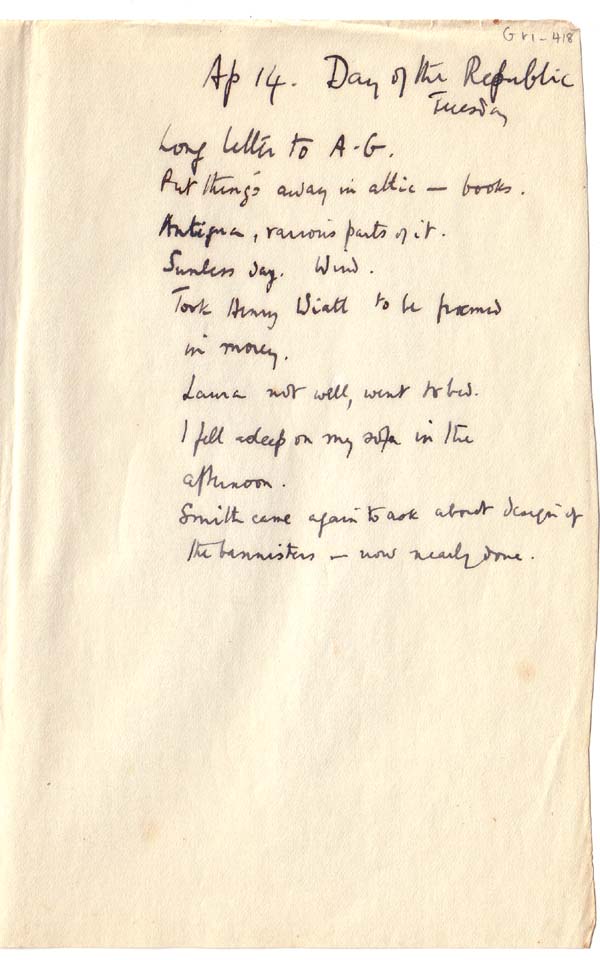 GV1-418
Ap 14. Day of the Republic
Tuesday
Long letter to A-G.
Put things away in attic – books.
Antigua, various parts of it.
Sunless day. Wind.
Took Henry Wiatt to be framed
in morng.
Laura not well, went to bed.
I fell asleep on my sofa in the
afternoon.
Smith came again to ask about design of
the bannisters – now nearly done.